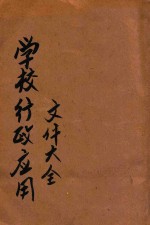 学校行政应用
文件大全